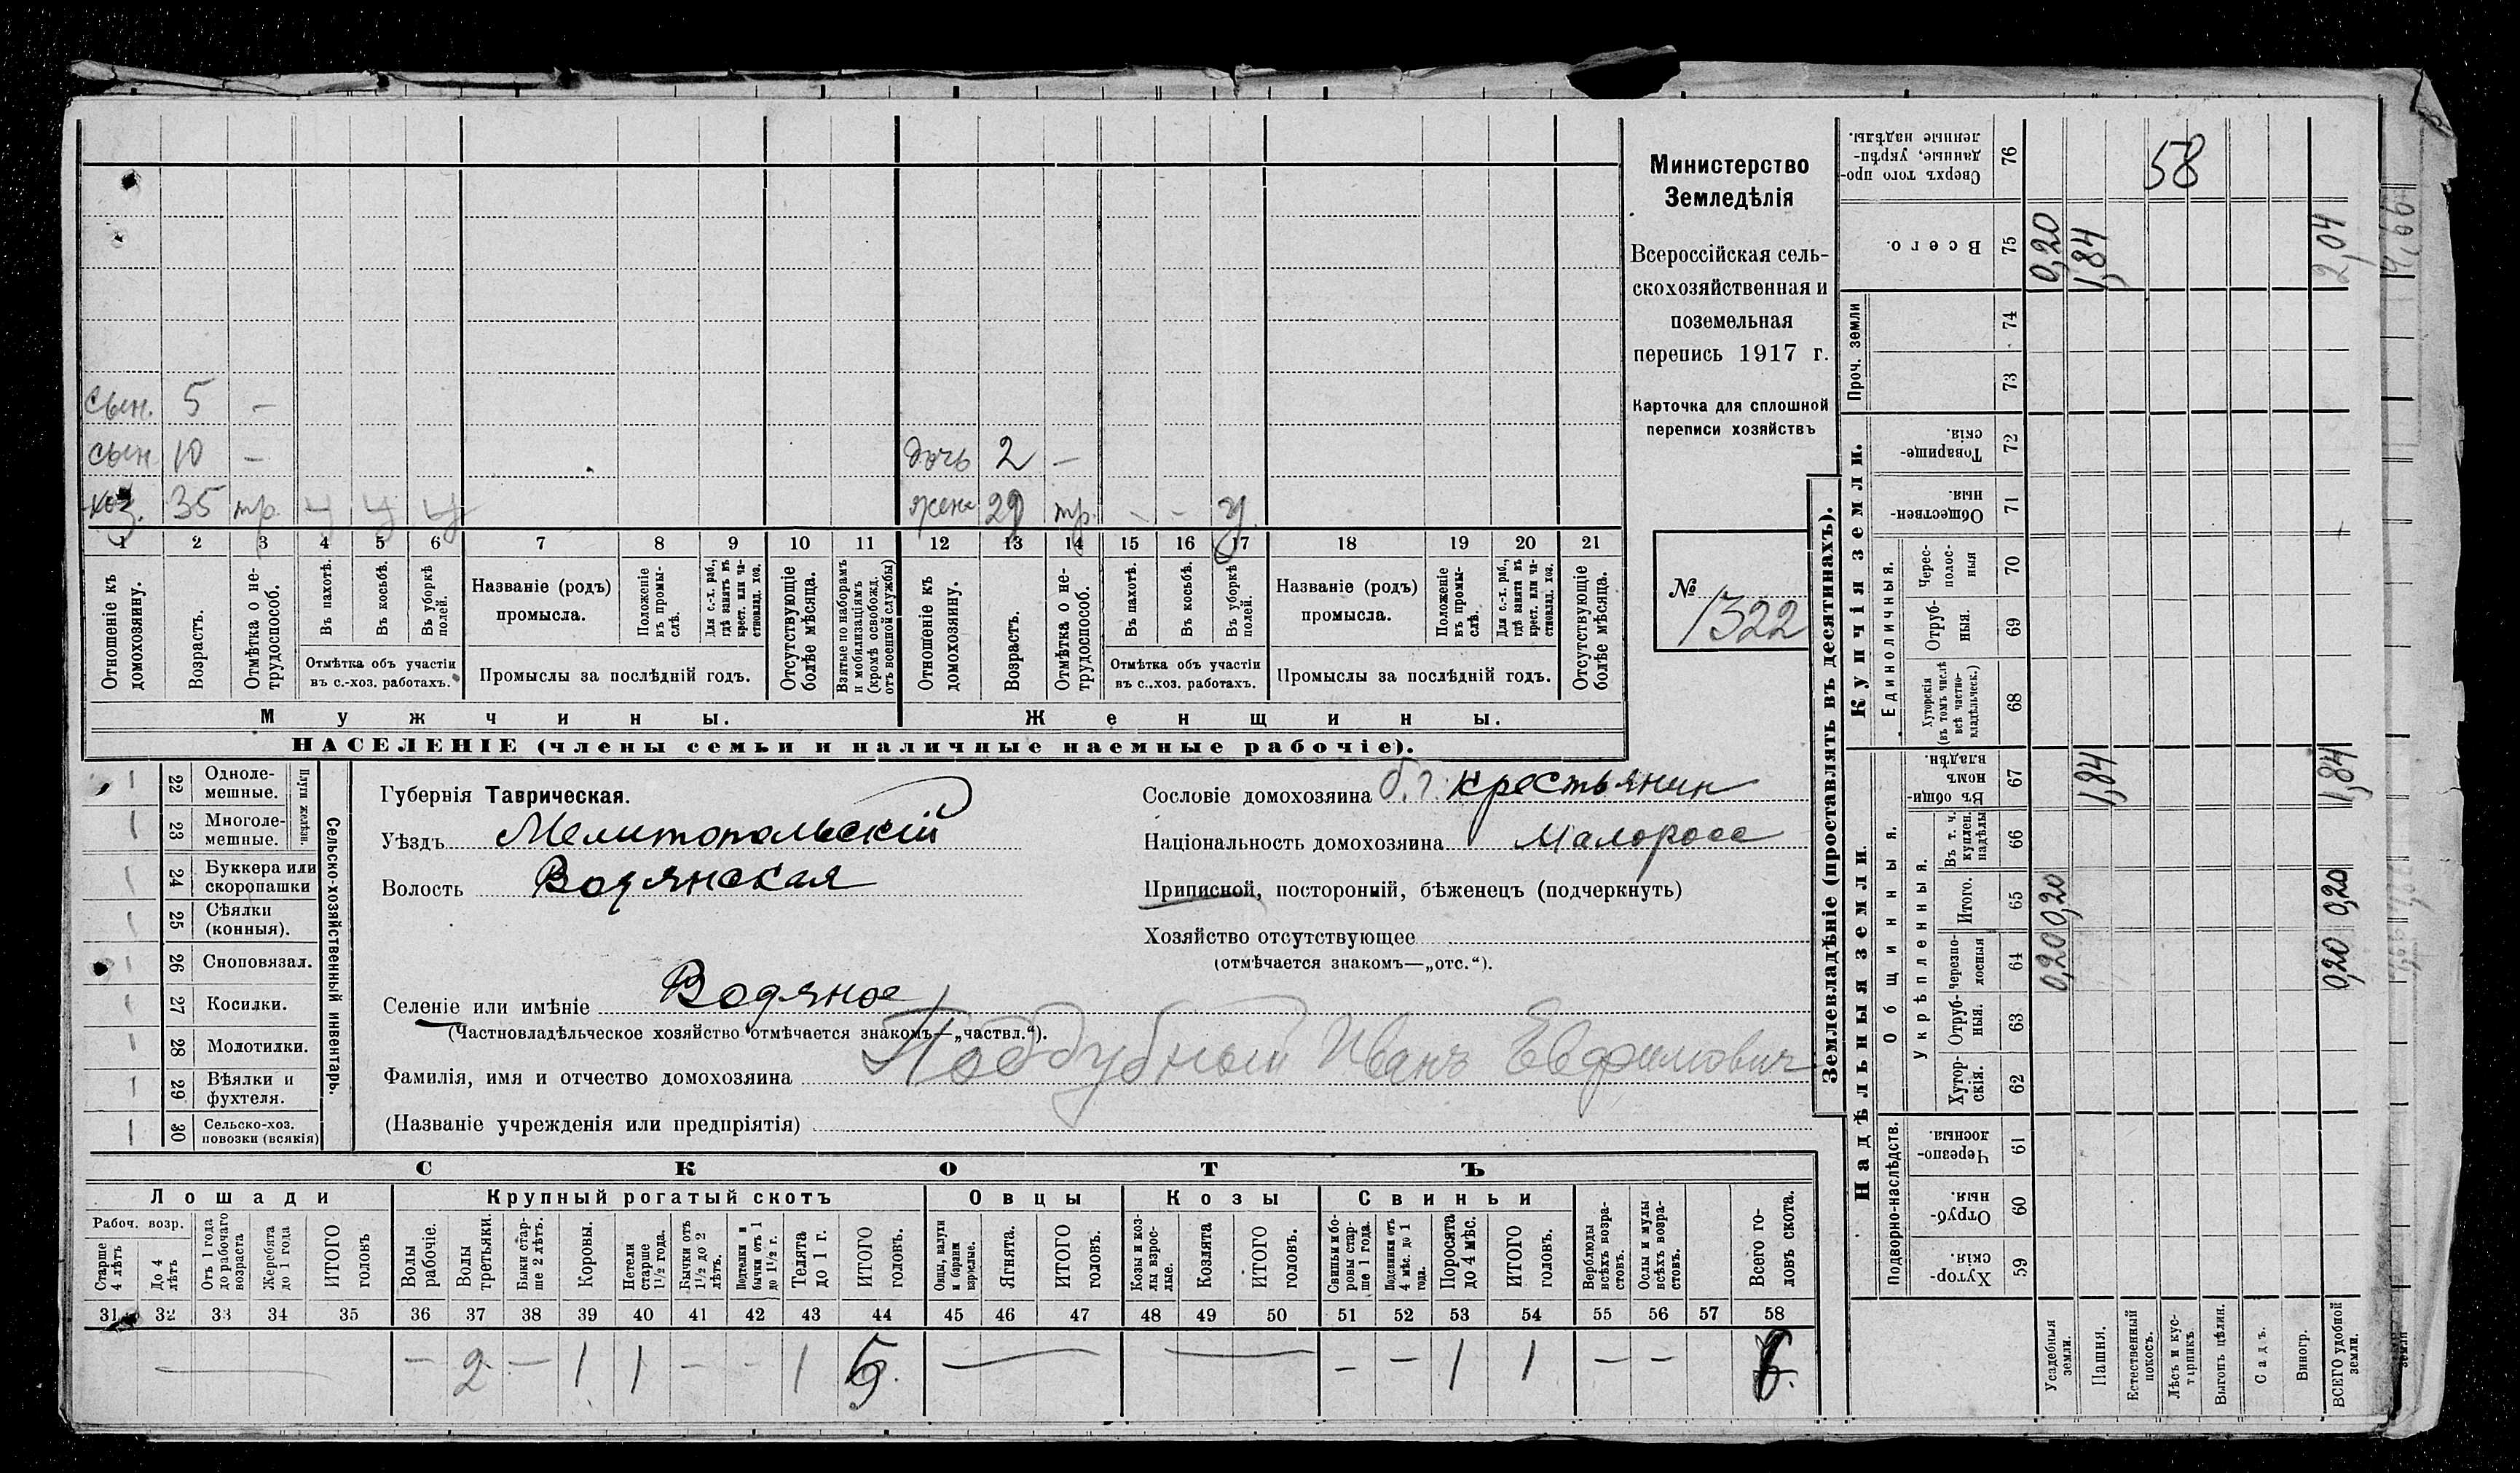 Министерство
Земледѣлія
Всероссійская сель-
скохозяйственная и
поземельная
перепись 1917 г.
Карточка для сплошной
переписи хозяйствъ
№ 1322
сын. 5 —
сын 10 — дочь 2 —
хоз. 35 тр. у у у жена 29 тр. - - у
1 2 3 4 5 6 7 8 9 10 11 12 13 14 15 16 17 18 19 20 21
Отношеніе къ домохозяину.
Возрастъ.
Отмѣтка о не-трудоспособ.
Въ пахотѣ.
Въ косьбѣ.
Въ уборкѣ полей.
Отмѣтка объ участіи
въ с.-хоз. работахъ.
Названіе (родъ)
промысла.
Положеніе въ промы-слѣ.
Для с.-х. раб., гдѣ занятъ въ крест. или ча-стновлад. хоз.
Промыслы за послѣдній годъ.
Отсутствующіе болѣе мѣсяца.
Взятые по наборамъ и мобилизаціямъ (кромѣ освобожд. отъ военной службы)
Отношеніе къ домохозяину.
Возрастъ.
Отмѣтка о не-трудоспособ.
Въ пахотѣ.
Въ косьбѣ.
Въ уборкѣ полей.
Отмѣтка объ участіи
въ с..хоз. работахъ.
Названіе (родъ)
промысла.
Положеніе въ промы-слѣ.
Для с.-х. раб., гдѣ занята въ крест. или ча-стновлад. хоз.
Промыслы за послѣдній годъ.
Отсутствующіе болѣе мѣсяца.
Мужчины. Женщины.
НАСЕЛЕНІЕ (члены семьи и наличные наемные рабочіе).
22 Одноле-мешные.
23 Многоле-мешные.
Плуги желѣзн.
24 Буккера или скоропашки
25 Сѣялки (конныя).
26 Сноповязал.
27 Косилки.
28 Молотилки.
29 Вѣялки и фухтеля.
30 Сельско-хоз. повозки (всякія)
Сельско-хозяйственный инвентарь.
Губернія Таврическая.
Уѣздъ Мелитопольскій
Волость Водянская
Селеніе или имѣніе Водяное
(Частновладѣльческое хозяйство отмѣчается знакомъ—„частвл.“).
Фамилія, имя и отчество домохозяина Поддубный Иванъ Евфимович
(Названіе учрежденія или предпріятія)
Сословіе домохозяина б. г. крестьянин
Національность домохозяина Малоросс
Приписной, посторонній, бѣженецъ (подчеркнуть)
Хозяйство отсутствующее
(отмѣчается знакомъ—„отс.“).
СКОТЪ
Лошади Крупный рогатый скотъ Овцы Козы Свиньи
Рабоч. возр.
Старше 4 лѣтъ
До 4 лѣтъ
Отъ 1 года до рабочаго возраста
Жеребята до 1 года
ИТОГО головъ
Волы рабочіе.
Волы третьяки.
Быки стар-ше 2 лѣтъ.
Коровы.
Нетели старше 1½ года.
Бычки отъ 1½ до 2 лѣтъ.
Подтелки и бычки отъ 1 до 1½ г.
Телята до 1 г.
ИТОГО головъ.
Овцы, валухи и бараны взрослые.
Ягнята.
ИТОГО головъ.
Козы и коз-лы взрос-лые.
Козлята
ИТОГО головъ.
Свиньи и бо-ровы стар-ше 1 года.
Подсвинки отъ 4 мѣс. до 1 года.
Поросята до 4 мѣс.
ИТОГО головъ.
Верблюды всѣхъ возра-стовъ.
Ослы и мулы всѣхъ возра-стовъ.
Всего го-ловъ скота.
31 32 33 34 35 36 37 38 39 40 41 42 43 44 45 46 47 48 49 50 51 52 53 54 55 56 57 58
— - 2 - 1 1 - - 1 5. — — - - 1 1 - - 6.
Землевладѣніе (проставлять въ десятинахъ).
Надѣльныя земли. Купчія земли. Проч. земли
Подворно-наслѣдств.
Общинныя.
Укрѣпленныя.
Единоличныя.
Хутор-скія. 59
Отруб-ныя. 60
Черезпо-лосныя. 61
Хутор-скія. 62
Отруб-ныя. 63
Черезпо-лосныя 64
Итого. 65
Въ т. ч. куплен. надѣлы 66
Въ общи-номъ владѣн. 67
Хуторскія (въ томъ числѣ всѣ частно-владѣльческ.) 68
Отруб-ныя. 69
Черес-полос-ныя 70
Обществен-ныя 71
Товарище-скія. 72
73
74
Всего. 75
Сверхъ того про-данные, укрѣп-ленные надѣлы. 76
Усадебныя земли. 0,20 0,20 0,20
Пашня. 1,84 1,84
Естественный покосъ.
Лѣсъ и кус-тарникъ
Выгонъ цѣлин.
Садъ.
Виногр.
ВСЕГО удобной земли. 0,20 0,20 1,84 2,04
58